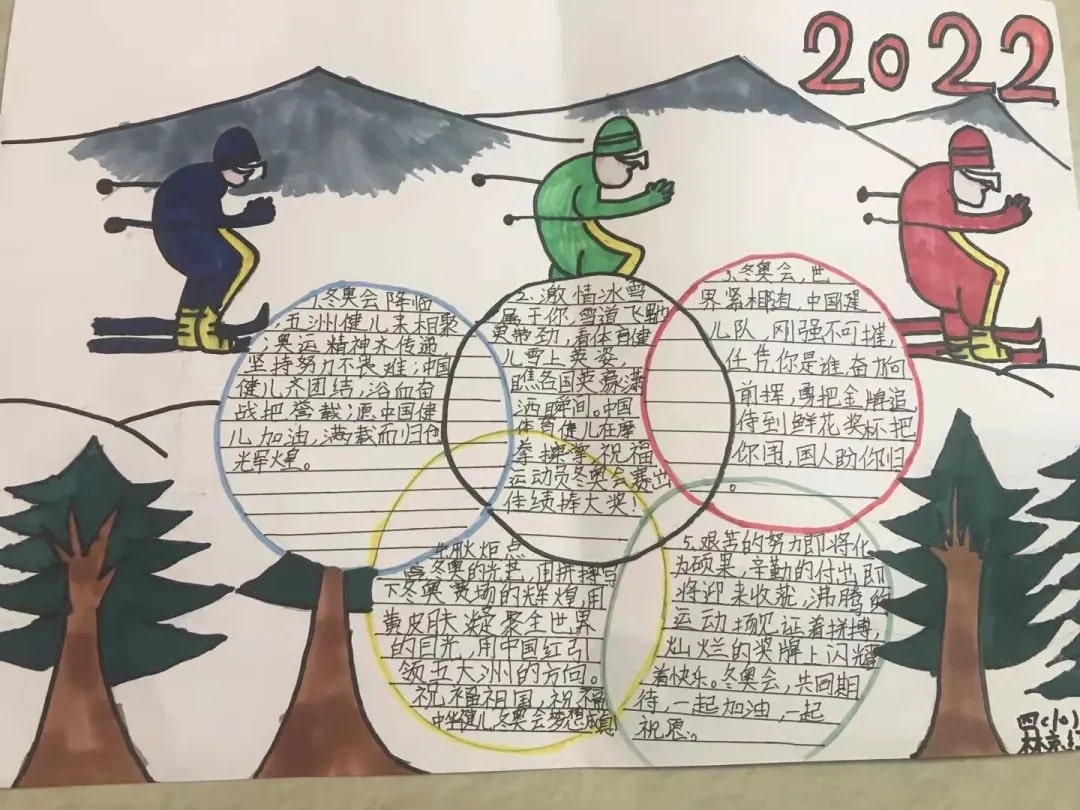 2022
1.冬奥会降临
,五洲健儿来相聚
;奥运精神齐传递
坚持努力不畏难;中国
健儿齐团结,浴血奋
战把誉载;愿中国健
儿加油,满载而归创
光辉煌。
2.激情冰雪
属于你,雪道飞驰
更带劲,看体育健
儿雪上英姿,
瞧各国英豪潇
洒瞬间。中国
体育健儿在摩
拳擦掌,祝福
运动员冬奥会赛出
佳绩捧大奖!
3.冬奥会,世
界紧相连,中国健
儿队,刚强不可摧,
任凭你是谁,奋力向
前挥,勇把金牌追,
待到鲜花奖杯把
你围,国人盼你归
。
4.用火炬点
冬奥的光芒,用拼搏写
下冬奥赛场的辉煌,用
黄皮肤凝聚全世界
的目光,用中国红引
领五大洲的方向。
祝福祖国,祝福
中华健儿冬奥会梦想成真
5.艰苦的努力即将化
为硕果,辛勤的付出即
将迎来收获,沸腾的
运动场见证着拼搏,
灿烂的奖牌上闪耀
着快乐。冬奥会,共同期
待,一起加油,一起
祝愿。
四(10)
林京